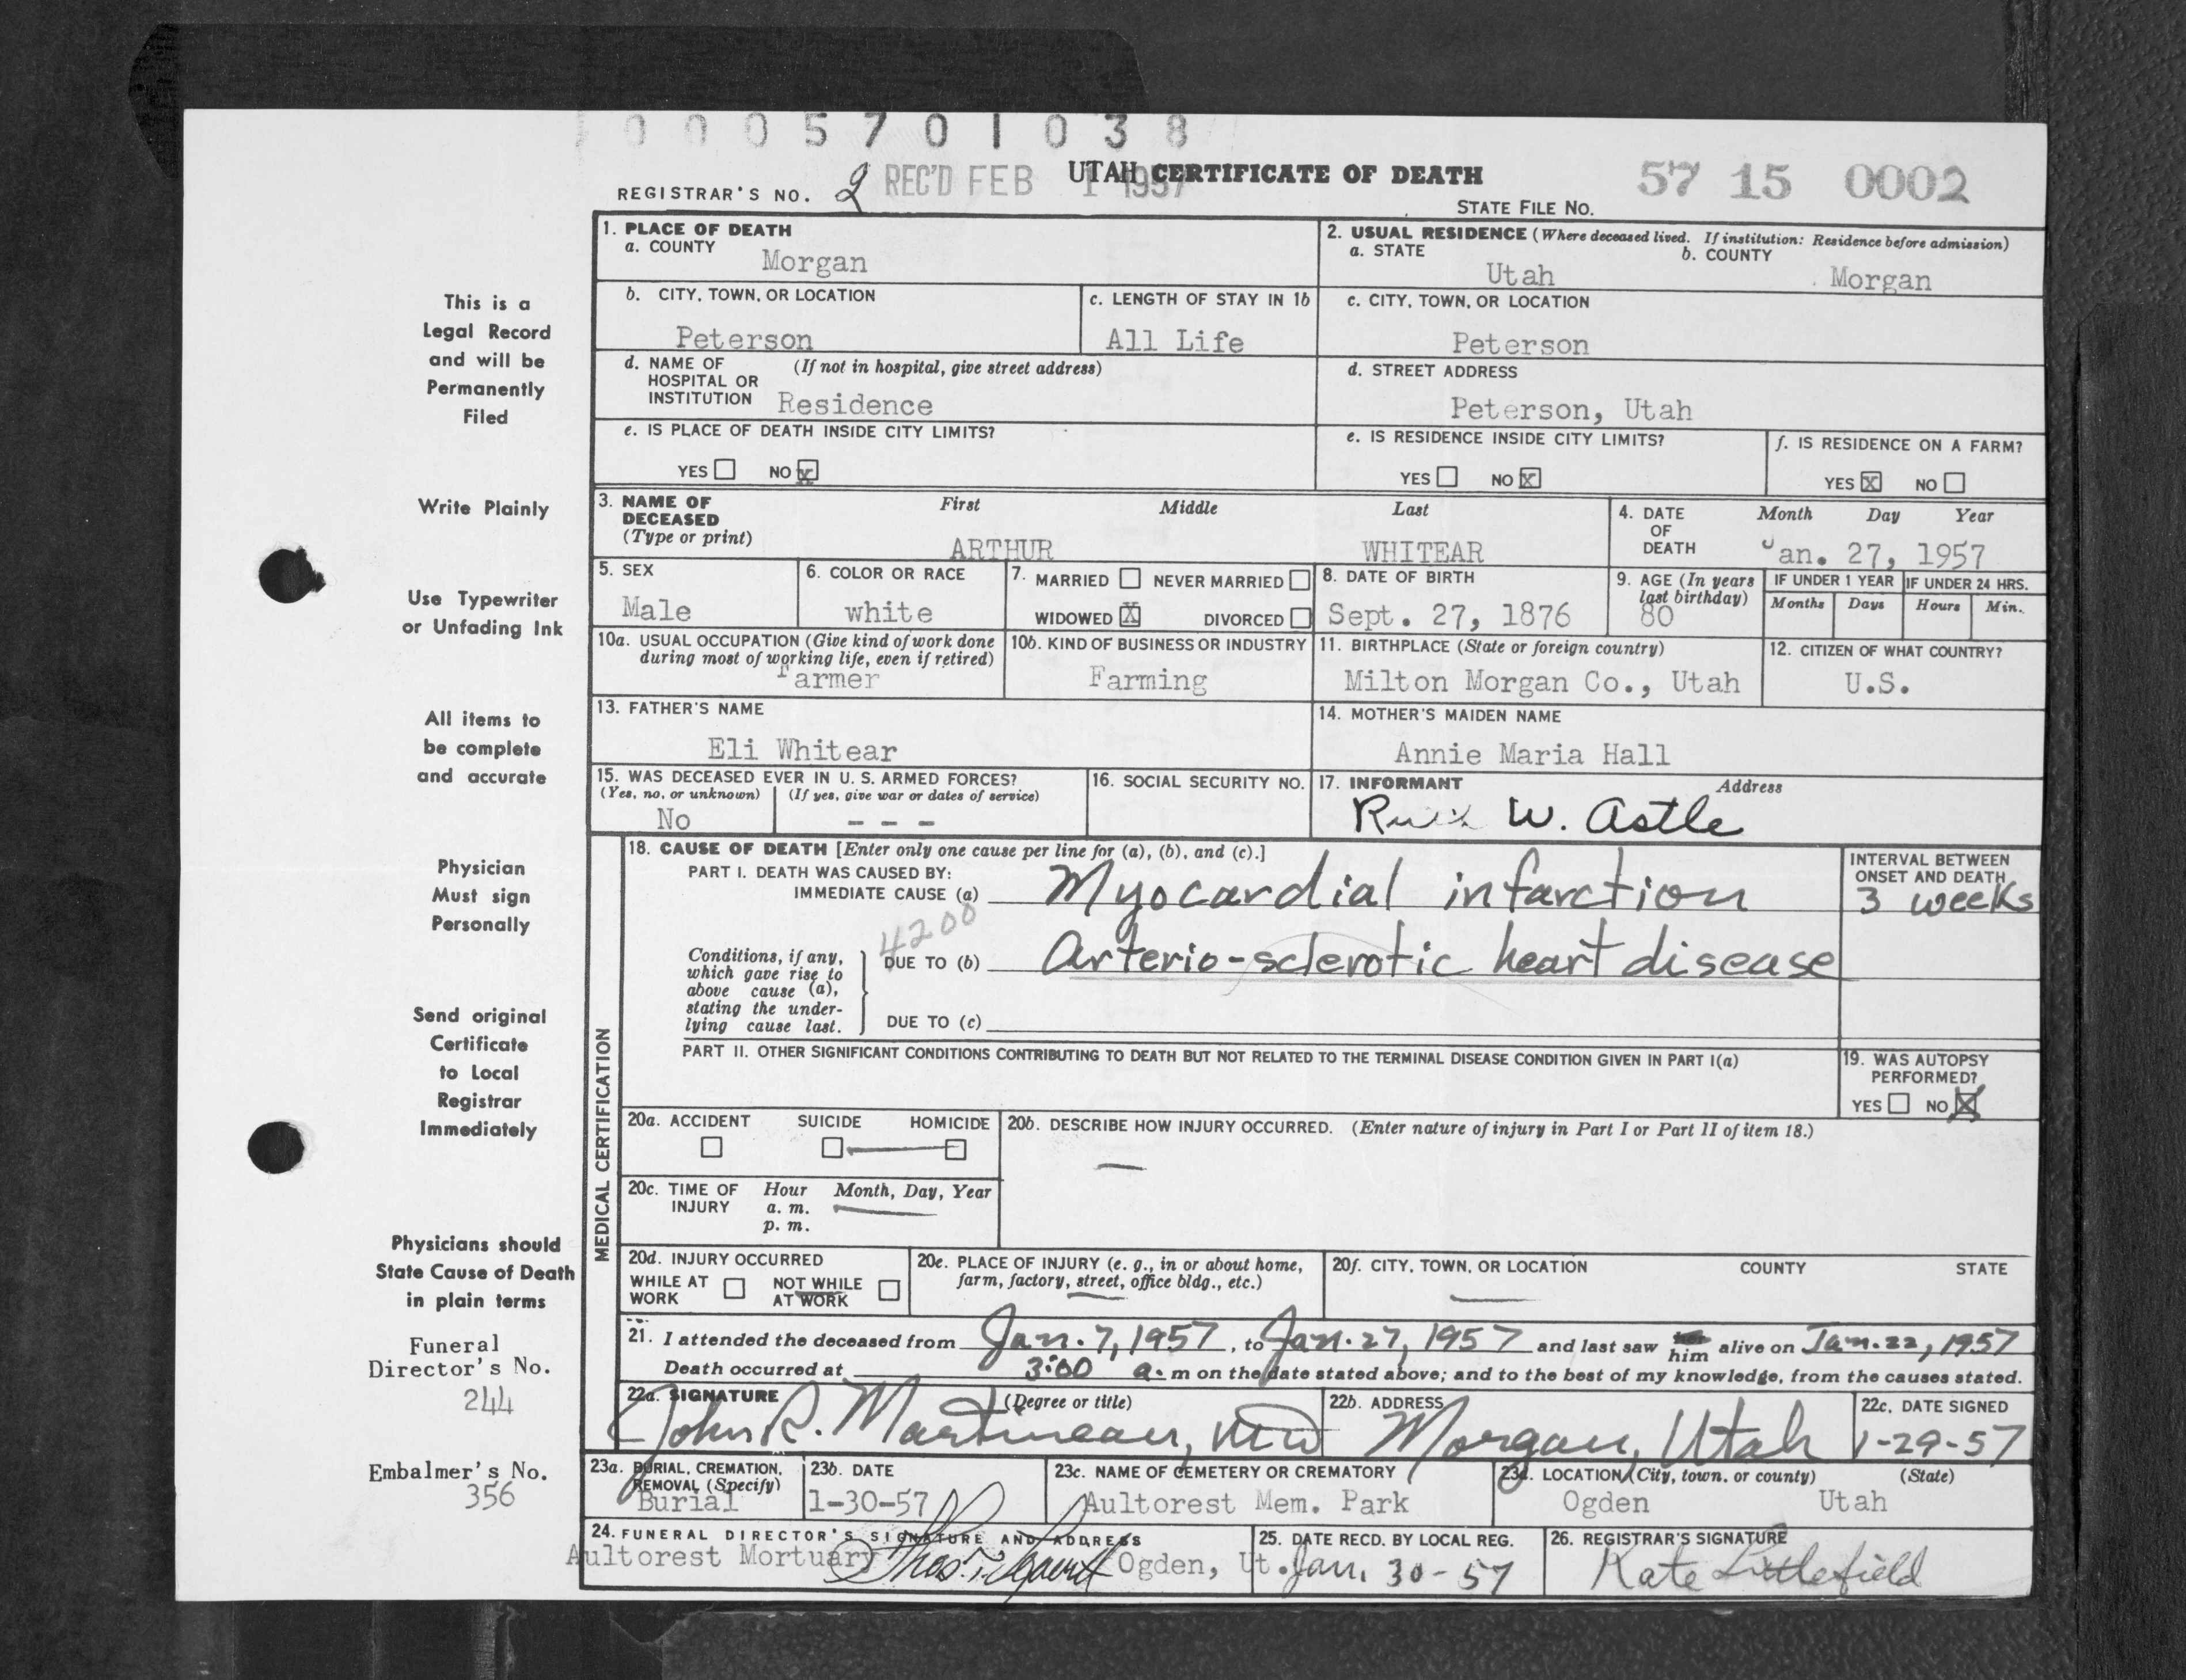 0005701038
REGISTRAR'S NO. 2 REC'D FEB 1 1957 UTAH CERTIFICATE OF DEATH 57 15 0002
STATE FILE NO.
1. PLACE OF DEATH
a. COUNTY
Morgan
2. USUAL RESIDENCE (Where deceased lived. If institution: Residence before admission)
a. STATE b. COUNTY
Utah Morgan
b. CITY, TOWN, OR LOCATION
Peterson
c. LENGTH OF STAY IN 1b
All Life
c. CITY, TOWN, OR LOCATION
Peterson
d. NAME OF (If not in hospital, give street address)
HOSPITAL OR
INSTITUTION Residence
d. STREET ADDRESS
Peterson, Utah
e. IS PLACE OF DEATH INSIDE CITY LIMITS?
YES NO X
e. IS RESIDENCE INSIDE CITY LIMITS?
YES NO X
f. IS RESIDENCE ON A FARM?
YES X NO
3. NAME OF First Middle Last
DECEASED
(Type or print)
ARTHUR WHITEAR
4. DATE Month Day Year
OF
DEATH Jan. 27, 1957
5. SEX
Male
6. COLOR OR RACE
white
7. MARRIED NEVER MARRIED
WIDOWED X DIVORCED
8. DATE OF BIRTH
Sept. 27, 1876
9. AGE (In years
last birthday)
80
IF UNDER 1 YEAR IF UNDER 24 HRS.
Months Days Hours Min.
10a. USUAL OCCUPATION (Give kind of work done
during most of working life, even if retired)
Farmer
10b. KIND OF BUSINESS OR INDUSTRY
Farming
11. BIRTHPLACE (State or foreign country)
Milton Morgan Co., Utah
12. CITIZEN OF WHAT COUNTRY?
U.S.
13. FATHER'S NAME
Eli Whitear
14. MOTHER'S MAIDEN NAME
Annie Maria Hall
15. WAS DECEASED EVER IN U. S. ARMED FORCES?
(Yes, no, or unknown) (If yes, give war or dates of service)
No - - -
16. SOCIAL SECURITY NO.
17. INFORMANT Address
W. Astle
MEDICAL CERTIFICATION
18. CAUSE OF DEATH [Enter only one cause per line for (a), (b), and (c).]
PART I. DEATH WAS CAUSED BY:
IMMEDIATE CAUSE (a) Myocardial infarction
INTERVAL BETWEEN
ONSET AND DEATH
3 weeks
4200
Conditions, if any,
which gave rise to
above cause (a),
stating the under-
lying cause last.
DUE TO (b) Arterio-sclerotic heart disease
DUE TO (c)
PART II. OTHER SIGNIFICANT CONDITIONS CONTRIBUTING TO DEATH BUT NOT RELATED TO THE TERMINAL DISEASE CONDITION GIVEN IN PART I(a)
19. WAS AUTOPSY
PERFORMED?
YES NO X
20a. ACCIDENT SUICIDE HOMICIDE
20b. DESCRIBE HOW INJURY OCCURRED. (Enter nature of injury in Part I or Part II of item 18.)
20c. TIME OF Hour Month, Day, Year
INJURY a. m.
p. m.
20d. INJURY OCCURRED
WHILE AT NOT WHILE
WORK AT WORK
20e. PLACE OF INJURY (e. g., in or about home,
farm, factory, street, office bldg., etc.)
20f. CITY, TOWN, OR LOCATION COUNTY STATE
21. I attended the deceased from Jan. 7, 1957, to Jan. 27, 1957 and last saw him alive on Jan. 22, 1957
Death occurred at 3:00 a. m on the date stated above; and to the best of my knowledge, from the causes stated.
22a. SIGNATURE (Degree or title)
John R. Martineau, MD
22b. ADDRESS
Morgan, Utah
22c. DATE SIGNED
1-29-57
23a. BURIAL, CREMATION,
REMOVAL (Specify)
Burial
23b. DATE
1-30-57
23c. NAME OF CEMETERY OR CREMATORY
Aultorest Mem. Park
23d. LOCATION (City, town, or county) (State)
Ogden Utah
24. FUNERAL DIRECTOR'S SIGNATURE AND ADDRESS
Aultorest Mortuary Ogden, Ut.
25. DATE RECD. BY LOCAL REG.
Jan. 30-57
26. REGISTRAR'S SIGNATURE
Kate Littlefield
This is a
Legal Record
and will be
Permanently
Filed
Write Plainly
Use Typewriter
or Unfading Ink
All items to
be complete
and accurate
Physician
Must sign
Personally
Send original
Certificate
to Local
Registrar
Immediately
Physicians should
State Cause of Death
in plain terms
Funeral
Director's No.
244
Embalmer's No.
356